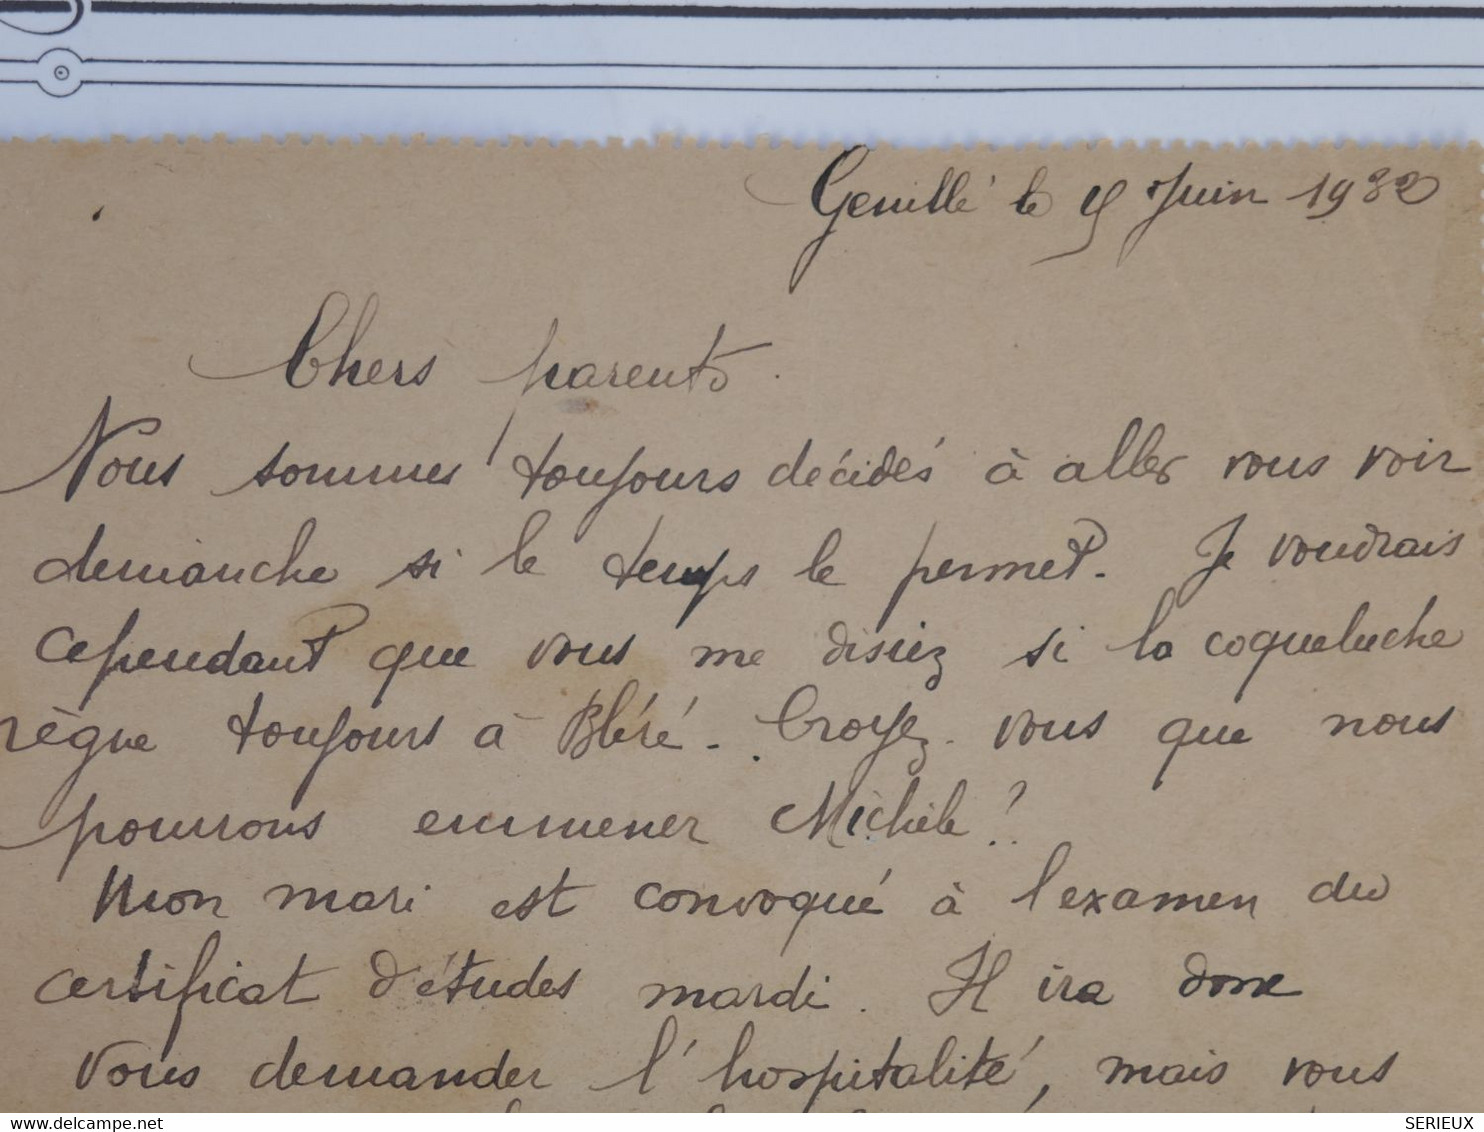 Genillé le 9 Juin 1932
Chers parents.
Nous sommes toujours décidés à aller vous voir
demanche si le temps le permet. Je voudrais
cependant que vous me disiez si la coqueluche
règne toujours à Bléré. Croyez-vous que nous
pourrons emmener Michèle?
Mon mari est convoqué à l'examen du
certificat d'études mardi. Il ira donc
vous demander l'hospitalité, mais vous
SERIEUX
www.delcampe.net